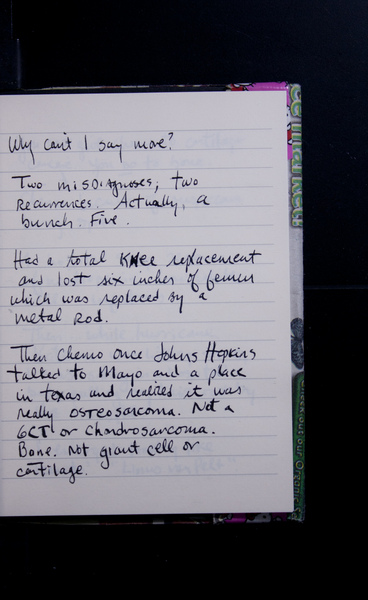 Why can't I say more?
Two misdiagnoses, two
recurrences. Actually, a
bunch. Five.
Had a total knee replacement
and lost six inches of femur
which was replaced by a
metal rod.
Then chemo once Johns Hopkins
talked to Mayo and a place
in Texas and realized it was
really osteosarcoma. Not a
GCT or chondrosarcoma.
Bone. Not giant cell or
cartilage.
Check out our Organic